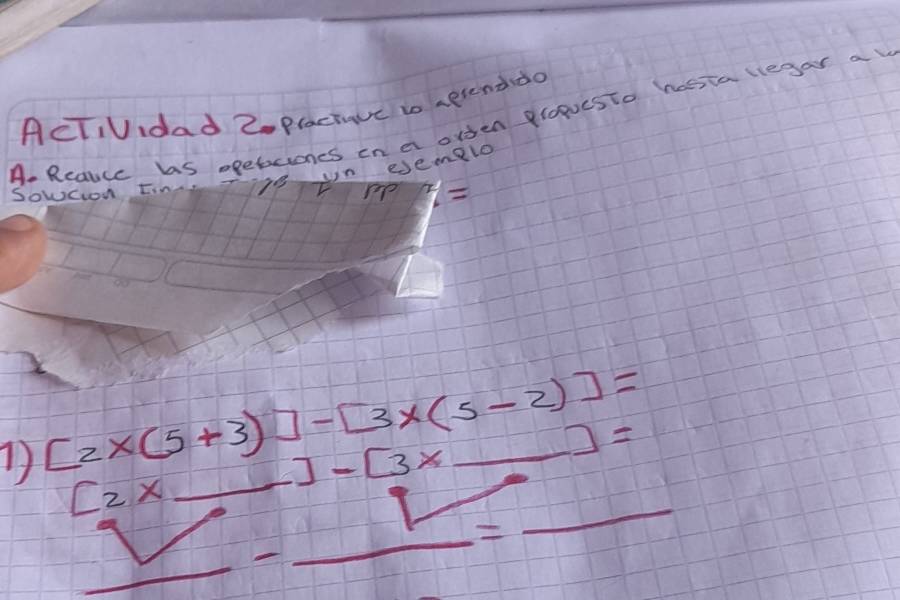 ACTIVIdad 2. Practique lo aprendido
A. Realice las operaciones en el orden propuesto hasta llegar a la
Solucion un ejemplo
=
1) [2×(5+3)]-[3×(5-2)]=
[2×___]-[3×___]=
___-___=___